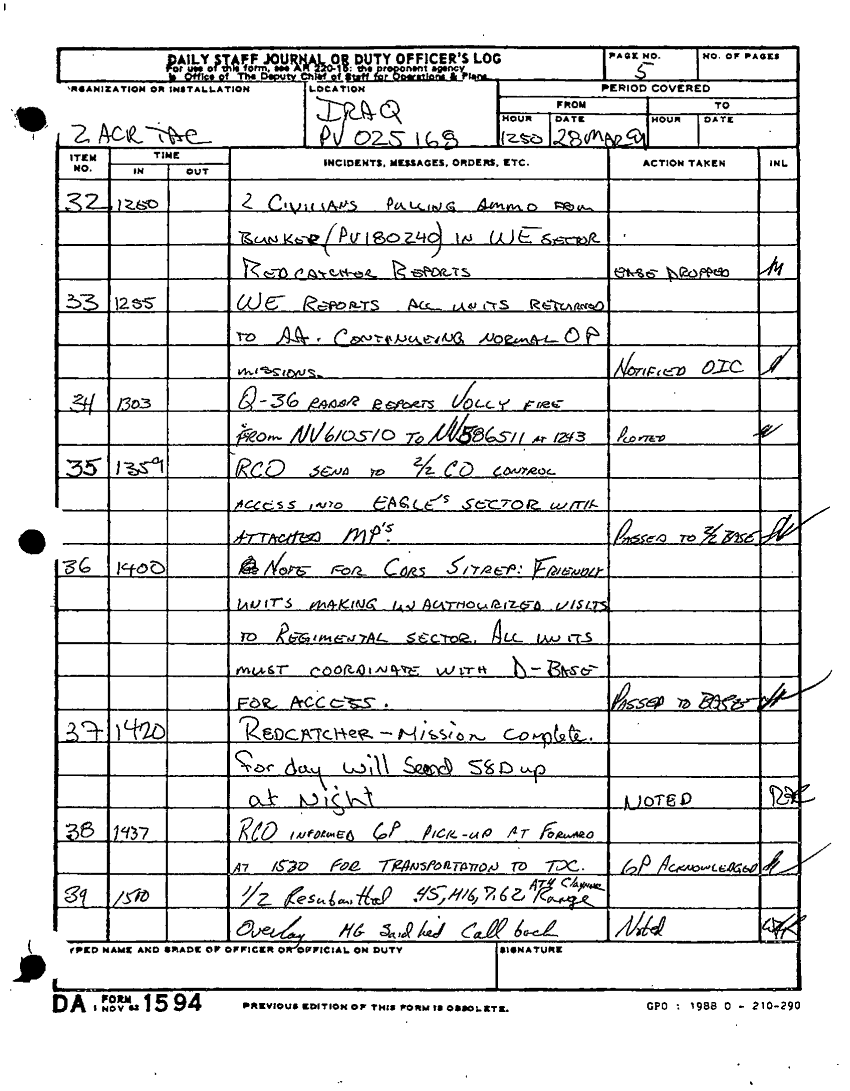 DAILY STAFF JOURNAL OR DUTY OFFICER'S LOG
For use of this form, see AR 220-15; the proponent agency
is Office of The Deputy Chief of Staff for Operations & Plans
PAGE NO.
5
NO. OF PAGES
RGANIZATION OR INSTALLATION
2 ACR TAC
LOCATION
IRAQ
PV 025168
PERIOD COVERED
FROM
TO
HOUR
DATE
HOUR
DATE
1250
28 MAR 91
ITEM NO.
TIME
IN
OUT
INCIDENTS, MESSAGES, ORDERS, ETC.
ACTION TAKEN
INL
32 1250 2 CIVILIANS PULLING AMMO FROM
BUNKER (PV180240) IN WE SECTOR
REDCATCHER REPORTS DROPPED
33 1255 WE REPORTS ALL UNITS RETURNED
TO AA. CONTINUEING NORMAL OP
MISSIONS. NOTIFIED OIC
34 1303 Q-36 RADAR REPORTS VOLLY FIRE
FROM NV610510 TO NV586511 AT 1243 PLOTTED
35 1359 RCO SEND TO 2/2 CO CONTROL
ACCESS INTO EAGLE'S SECTOR WITH
ATTACHED MP'S. PASSED TO 2/2 BASE
36 1400 NOTE FOR CORS SITREP: FRIENDLY
UNITS MAKING UNAUTHOURIZED VISITS
TO REGIMENTAL SECTOR. ALL UNITS
MUST COORDINATE WITH D-BASE
FOR ACCESS. PASSED TO BASE
37 1420 REDCATCHER - MISSION COMPLETE.
for day will Seend 58D up
at Night NOTED
38 1437 RCO INFORMED 6P PICK-UP AT FORWARD
AT 1530 FOR TRANSPORTATION TO TDC. 6P ACKNOWLEDGED
39 1500 1/2 Resubmittal .45, M16, 7.62, AT4 Claymore Range
Overlay MG Said hed Call back Noted
YPED NAME AND GRADE OF OFFICER OR OFFICIAL ON DUTY
SIGNATURE
DA FORM 1 NOV 62 1594
PREVIOUS EDITION OF THIS FORM IS OBSOLETE.
GPO : 1988 O - 210-290